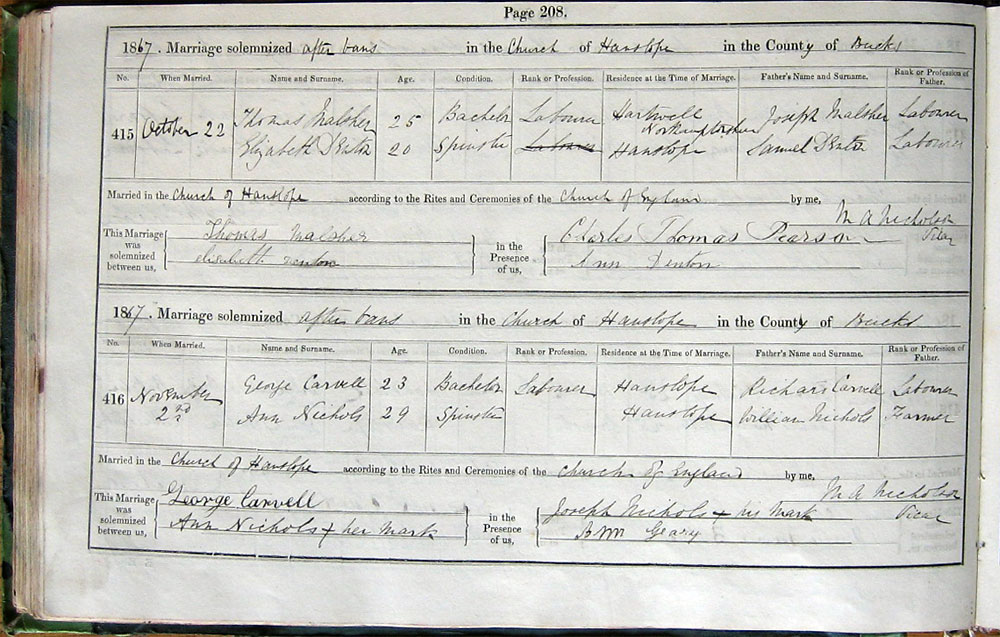 Page 208.
1867. Marriage solemnized after bans in the Church of Hanslope in the County of Bucks
No. When Married. Name and Surname. Age. Condition. Rank or Profession. Residence at the Time of Marriage. Father's Name and Surname. Rank or Profession of Father.
415 October 22 Thomas Malsher 25 Bachelor Labourer Hartwell Northamptonshire Joseph Malsher Labourer
Elizabeth Denton 20 Spinster Labourer Hanslope Samuel Denton Labourer
Married in the Church of Hanslope according to the Rites and Ceremonies of the Church of England by me,
M A Nicholson
Vicar
This Marriage was solemnized between us, Thomas Malsher in the Presence of us, Charles Thomas Pearson
elisabeth denton Ann Denton
1867. Marriage solemnized after bans in the Church of Hanslope in the County of Bucks
No. When Married. Name and Surname. Age. Condition. Rank or Profession. Residence at the Time of Marriage. Father's Name and Surname. Rank or Profession of Father.
416 November 2nd George Carvell 23 Bachelor Labourer Hanslope Richard Carvell Labourer
Ann Nichols 29 Spinster Hanslope William Nichols Farmer
Married in the Church of Hanslope according to the Rites and Ceremonies of the Church of England by me,
M A Nicholson
Vicar
This Marriage was solemnized between us, George Carvell in the Presence of us, Joseph Nichols + his mark
Ann Nichols + her mark Geary